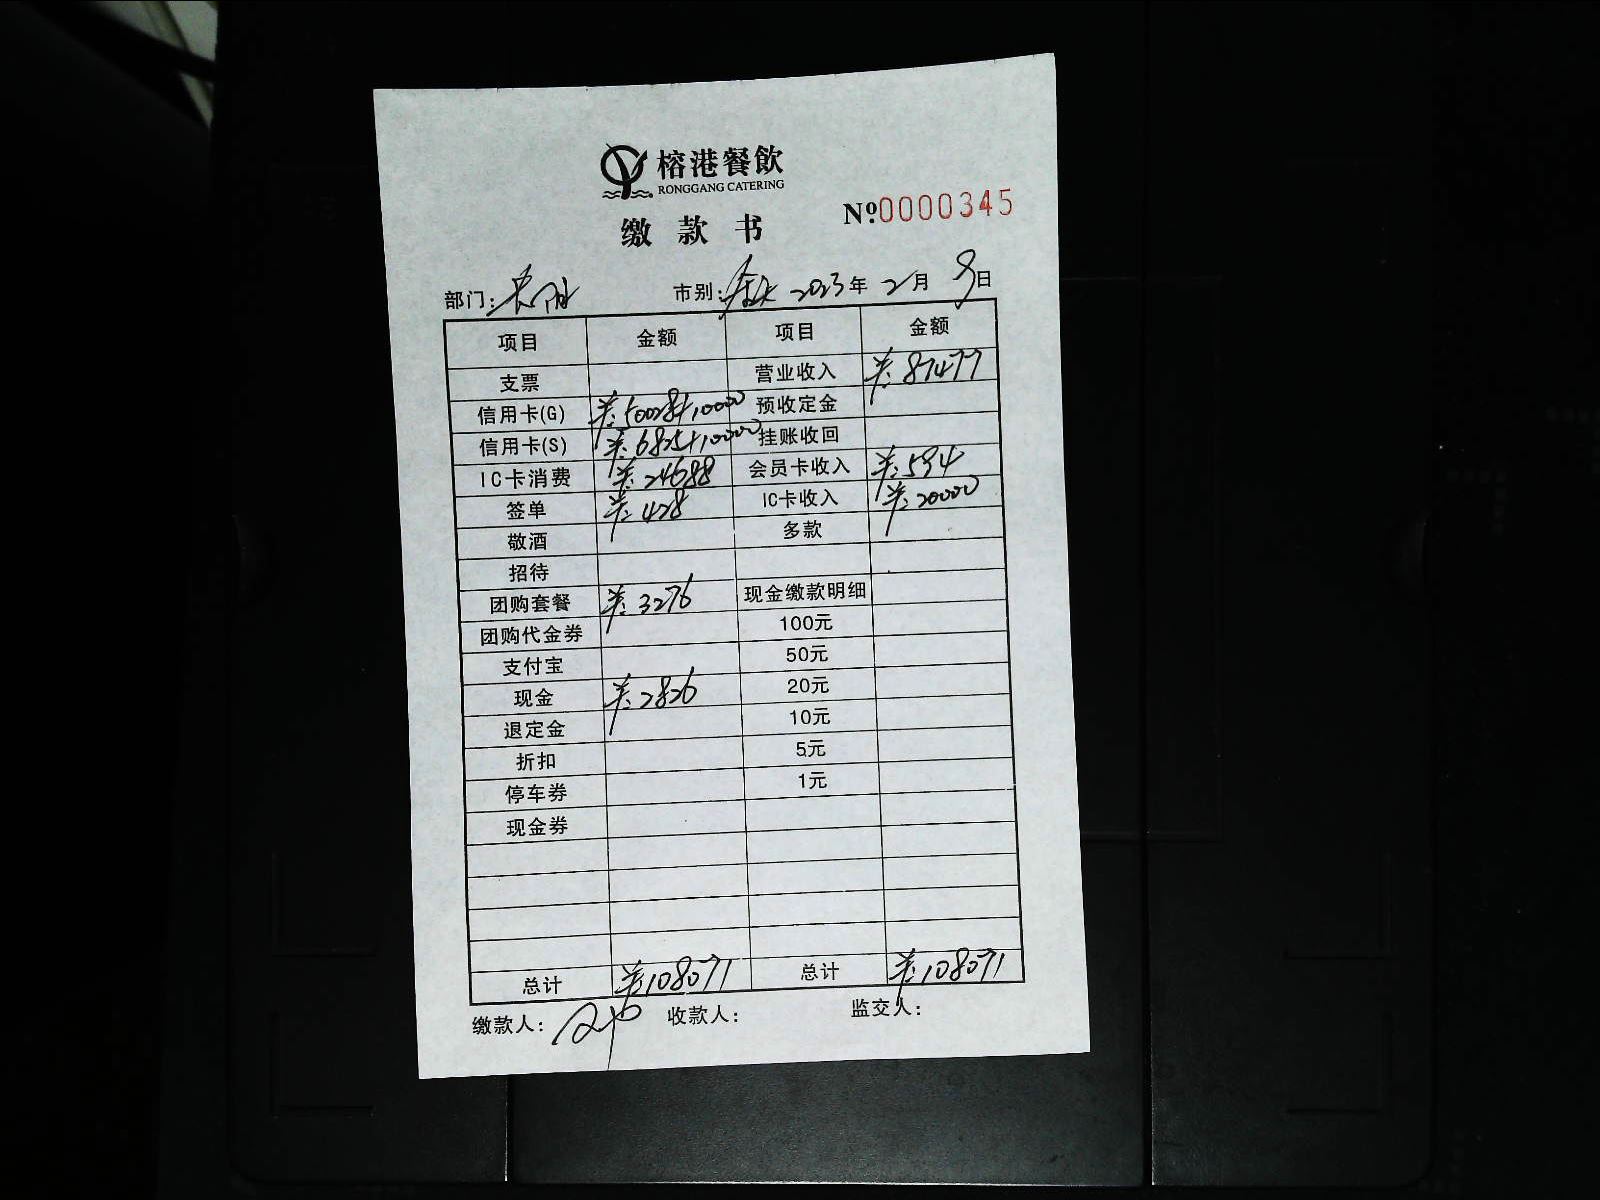 榕港餐飲
RONGGANG CATERING
缴款书
№0000345
部门: 市别: 2023年 2月 9日
项目 金额 项目 金额
支票 营业收入 ¥:87477
信用卡(G) ¥:50028+10000 预收定金
信用卡(S) ¥:6825+10000 挂账收回
IC卡消费 ¥:24688 会员卡收入 ¥:594
签单 ¥:428 IC卡收入 ¥:20000
敬酒 多款
招待
团购套餐 ¥:3276 现金缴款明细
团购代金券 100元
支付宝 50元
现金 ¥:2826 20元
退定金 10元
折扣 5元
停车券 1元
现金券
总计 ¥:108071 总计 ¥:108071
缴款人: 收款人: 监交人: